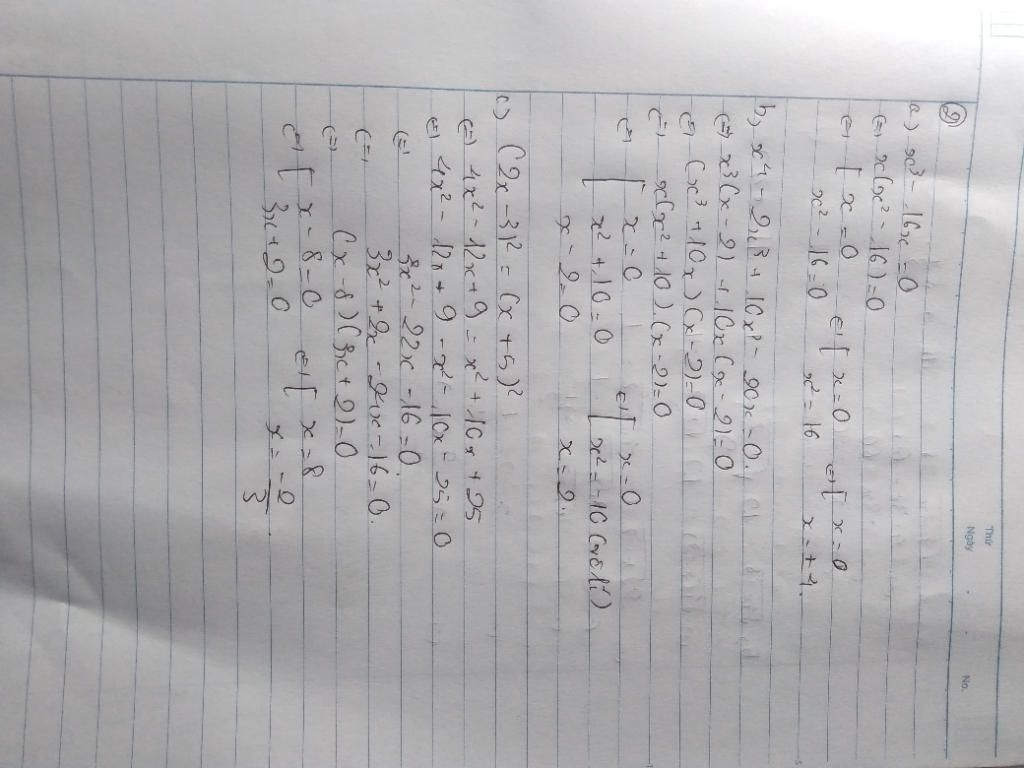 Thứ
Ngày
No.
②
a) x³ - 16x = 0
<=> x(x² - 16) = 0
<=> [ x = 0 <=> [ x = 0 <=> [ x = 0
x² - 16 = 0 x² = 16 x = ±4.
b) x⁴ - 2x³ + 10x² - 20x = 0.
<=> x³(x - 2) + 10x(x - 2) = 0
<=> (x³ + 10x)(x - 2) = 0
<=> x(x² + 10)(x - 2) = 0
<=> [ x = 0 <=> [ x = 0
x² + 10 = 0 x² = -10 (vô lí)
x - 2 = 0 x = 2.
c) (2x - 3)² = (x + 5)²
<=> 4x² - 12x + 9 = x² + 10x + 25
<=> 4x² - 12x + 9 - x² - 10x - 25 = 0
<=> 3x² - 22x - 16 = 0.
<=> 3x² + 2x - 24x - 16 = 0.
<=> (x - 8)(3x + 2) = 0
<=> [ x - 8 = 0 <=> [ x = 8
3x + 2 = 0 x = -2/3.